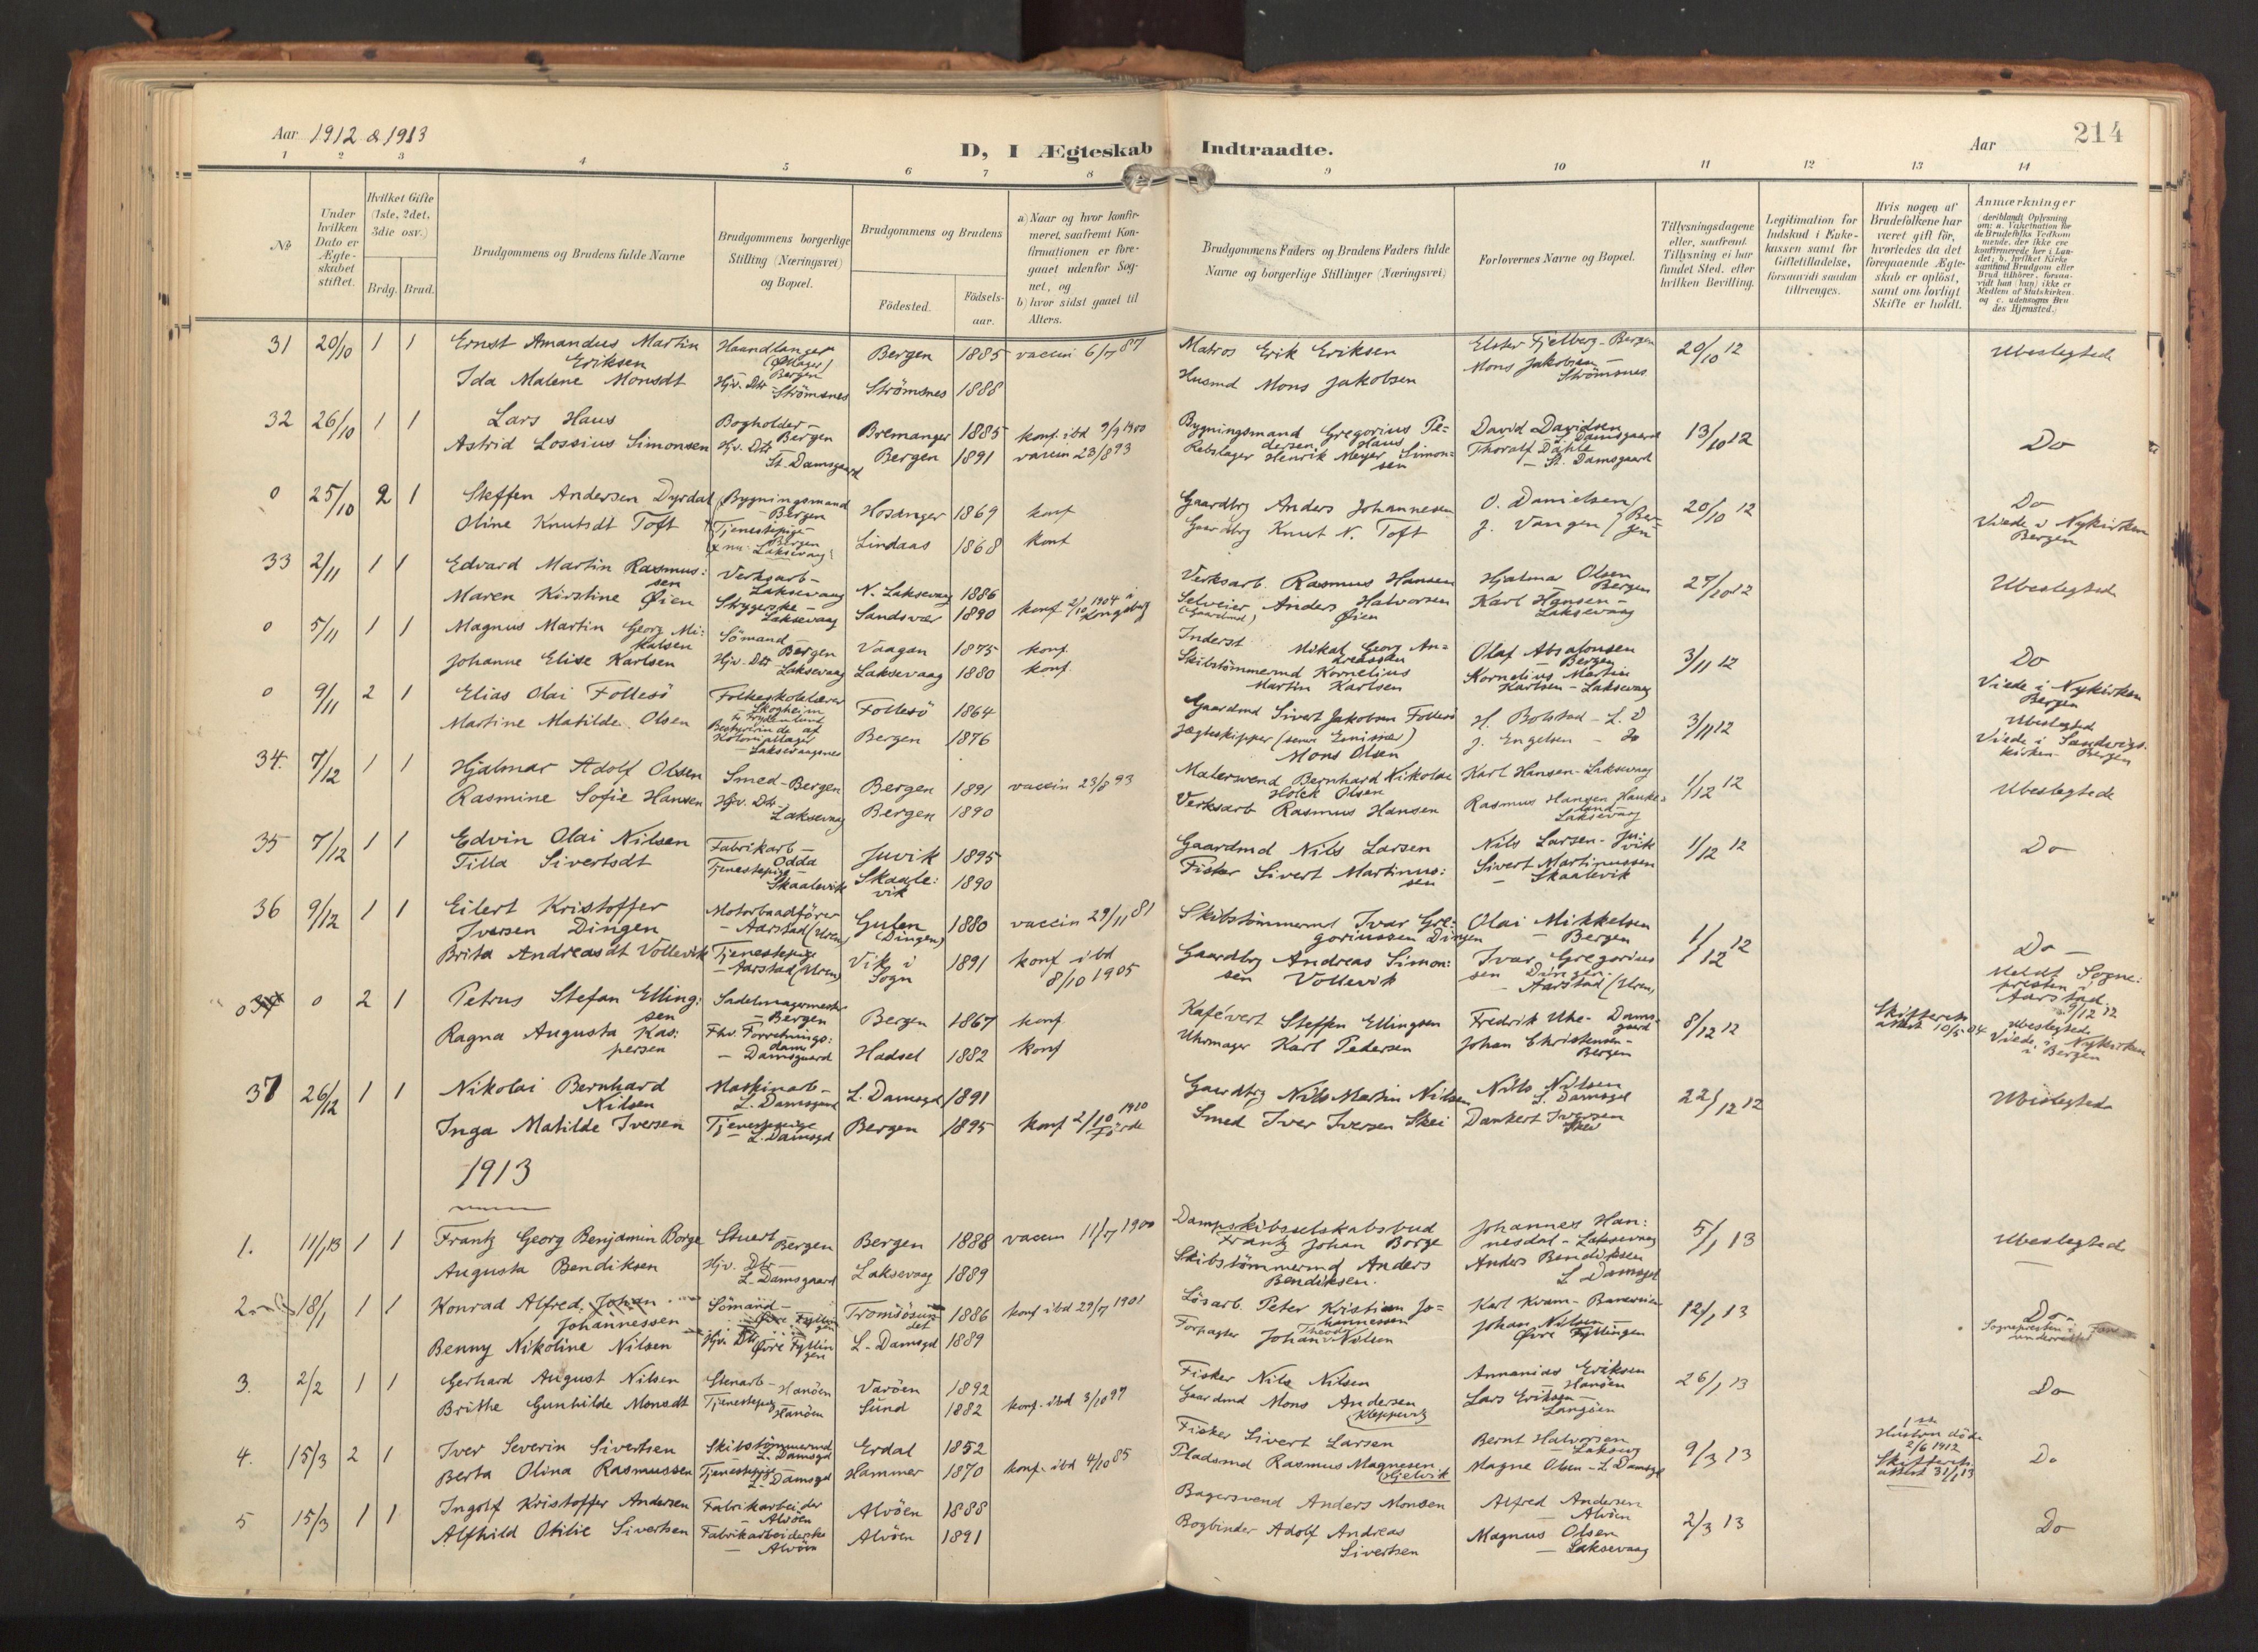 Aar 1912 & 1913
D, I Ægteskab Indtraadte.
Aar
214
1 2 3 4 5 6 7 8 9 10 11 12 13 14
No
Under hvilken Dato er Ægteskabet stiftet.
Hvilket Gifte (1ste, 2det, 3die osv.)
Brdg. Brud.
Brudgommens og Brudens fulde Navne
Brudgommens borgerlige Stilling (Næringsvei) og Bopæl.
Brudgommens og Brudens
Fødested.
Fødselsaar.
a) Naar og hvor konfirmeret, saafremt Konfirmationen er foregaaet udenfor Sognet, og
b) hvor sidst gaaet til Alters.
Brudgommens Faders og Brudens Faders fulde Navne og borgerlige Stillinger (Næringsvei)
Forlovernes Navne og Bopæl.
Tillysningsdagene eller, saafremt Tillysning ei har fundet Sted, efter hvilken Bevilling.
Legitimation for Indskud i Enkekassen samt for Giftetilladelse, forsaavidt saadan tiltrænges.
Hvis nogen af Brudefolkene har været gift før, hvorledes da det foregaaende Ægteskab er opløst, samt om lovligt Skifte er holdt.
Anmærkninger
(deriblandt Oplysning om: a. Vakcination for de Brudefolks Vedkommende, der ikke ere konfirmerede her i Landet; b. hvilket Kirkesamfund Brudgom eller Brud tilhører, forsaavidt han (hun) ikke er Medlem af Statskirken. og c. udensogns Brudes Hjemsted.)
31 20/10 1 1 Ernst Amandus Martin Eriksen Haandlanger (Øllager) Bergen Bergen 1885 vaccin 6/7 87 Matros Erik Eriksen Elster Fjelberg - Bergen 20/10 12 Ubeslegtede
Ida Malene Monsdt Hjv. Dtr - Strömsnes Strömsnes 1888 Husmd Mons Jakobsen Mons Jakobsen - Strömsnes
32 26/10 1 1 Lars Haus Bogholder - Bergen Bremanger 1885 konf. ibd 9/9 1900 Bygningsmand Gregorius Pedersen Haus David Davidsen - L. Damsgaard 13/10 12 Do
Astrid Lossius Simonsen Hjv. Dtr St. Damsgaard Bergen 1891 vaccin 23/8 93 Rebslager Henrik Meyer Simonsen Thoralf Dahle - St. Damsgaard
0 25/10 2 1 Steffen Andersen Dyrdal Bygningsmand - Bergen Hosanger 1869 konf Gaardbrg Anders Johannesen O. Danielsen 20/10 12 Do
Oline Knutsdt Toft Tjenestepige - Bergen (x nu Laksevaag) Lindaas 1868 konf Gaardbrg Knut N. Toft J. Vangen } Bergen Viede i Nykirken Bergen
33 2/11 1 1 Edvard Martin Rasmussen Verksarb - Laksevaag N. Laksevaag 1886 Verksarb. Rasmus Hansen Hjalmar Olsen Bergen 27/10 12 Ubeslegtede
Maren Kirstine Øien Strygerske - Laksevaag Sandsvær 1890 konf 2/10 1904 i Kongsberg Selveier (Gaardmd) Anders Halvorsen Øien Karl Hansen - Laksevaag
0 5/11 1 1 Magnus Martin Georg Mikalsen Sömand - Bergen Vaagan 1875 konf. Inderst Mikal Georg Andreassen Olaf Absalonsen - Bergen 3/11 12 Do
Johanne Elise Karlsen Hjv. Dtr - Laksevaag Laksevaag 1880 konf. Skibstömmermd Kornelius Martin Karlsen Kornelius Martin Karlsen - Laksevaag Viede i Nykirken Bergen
0 9/11 2 1 Elias Olai Follesö Folkeskolelærer - Skogheim Follesö 1864 Gaardmd Sivert Jakobsen Follesö H. Bolstad - L. D 3/11 12 Ubeslegted
Martine Matilde Olsen Bestyrerinde af Koloniallager - Laksevaagsnes Bergen 1876 Jægteskipper (senere Emissær) Mons Olsen J. Engelsen - Do Viede i Sandvigskirken Bergen
34. 7/12 1 1 Hjalmar Adolf Olsen Smed - Bergen Bergen 1891 vaccin 23/8 93 Malersvend Bernhard Nikolai Holck Olsen Karl Hansen - Laksevaag 1/12 12 Ubeslegtede
Rasmine Sofie Hansen Hjv. Dtr - Laksevaag Bergen 1890 Verksarb Rasmus Hansen Rasmus Hansen Haukeland - Laksevaag
35 7/12 1 1 Edvin Olai Nilsen Fabrikarb - Odda Juvik 1895 Gaardmd Nils Larsen Nils Larsen - Juvik 1/12 12 Do
Tilla Sivertsdt Tjenestepige - Skaalevik Skaalevik 1890 Fisker Sivert Martinussen Sivert Martinussen - Skaalevik
36 9/12 1 1 Eilert Kristoffer Iversen Dingen Motorbaadförer - Aarstad (Uren) Gulen (Dingen) 1880 vaccin 29/11 81 Skibstömmermd Ivar Gregoriussen Dingen Olai Mikkelsen - Bergen 1/12 12 Do -
Brita Andreasdt Vollevik Tjenestepige - Aarstad (Uren) Vik i Sogn 1891 konf ibd 8/10 1905 Gaardbrg Andreas Simonsen Vollevik Ivar Gregoriussen Dingen - Aarstad (Uren) Meldt Sognepresten i Aarstad 9/12 12
0 0 2 1 Petrus Stefan Ellingsen Sadelmagermester - Bergen Bergen 1867 konf. Kafévert Steffen Ellingsen Fredrik Uhe - Damsgaard 8/12 12 Skifteretsattest 10/5-04 Ubeslegtede
Ragna Augusta Kaspersen Fhv. Forretningsdame - Damsgaard Hadsel 1882 konf Uhrmager Karl Pedersen Johan Christensen - Bergen Viede i Nykirken i Bergen
37 26/12 1 1 Nikolai Bernhard Nilsen Maskinarb - L. Damsgaard L. Damsgd 1891 Gaardbrg Nils Martin Nilsen Nils Nilsen L. Damsgd 22/12 12 Ubeslegtede
Inga Matilde Iversen Tjenestepige - L. Damsgd Bergen 1895 konf 2/10 1910 Förde Smed Iver Iversen Skei Dankert Iversen Skei
1913
1. 11/1 13 1 1 Frantz Georg Benjamin Borge Stuert Bergen Bergen 1888 vaccin 11/7 1900 Dampskibsselskabsbud Frantz Johan Borge Johannes Hannesdal - Laksevaag 5/1 13 Ubeslegtede
Augusta Bendiksen Hjv. Dtr - L. Damsgaard Laksevaag 1889 Skibstömmermd Anders Bendiksen. Anders Bendiksen L Damsgd
2 18/1 1 1 Konrad Alfred Johan Johannessen Sömand - Øvre Fyllingen Tromsösundet 1886 konf ibd 29/7 1901 Lösarb. Peter Kristian Johannessen Karl Kvam - Baneveien 12/1 13 Do
Benny Nikoline Nilsen Hjv. Dtr Øvre Fyllingen L. Damsgd 1889 Forpagter Johan Theodor Nilsen Johan Nilsen - Øvre Fyllingen Sognepresten i Fane underrettet
3. 2/2 1 1 Gerhard August Nilsen Stenarb - Hanöen Varöen 1892 Fisker Nils Nilsen Annanias Eriksen - Hanöen 26/1 13 Do
Brithe Gunhilde Monsdt Tjenestepig Hanöen Sund 1882 konf. ibd 3/10 97 Gaardmd Mons Andersen Kleppevig Lars Eriksen - Langöen
4. 15/3 2 1 Iver Severin Sivertsen Skibstömmermd L. Damsgd Erdal 1852 Fisker Sivert Larsen Bernt Halvorsen - Laksevg 9/3 13 1ste Hustru döde 2/6 1912 Skifteretsattest 31/1 13 Do
Berta Olina Rasmussen Tjenestepig L. Damsgd Hammer 1870 konf. ibd 4/10 85 Pladsmd Rasmus Magnesen Gjelvik Magne Olsen - L Damsgd
5 15/3 1 1 Ingolf Kristoffer Andersen Fabrikarbeider - Alvöen Alvöen 1888 Bagersvend Anders Monsen Alfred Andersen - Alvöen 2/3 13 Do
Alfhild Otilie Sivertsen Fabrikarbeiderske - Alvöen Alvöen 1891 Bogbinder Adolf Andreas Sivertsen Magnus Olsen - Laksevaag